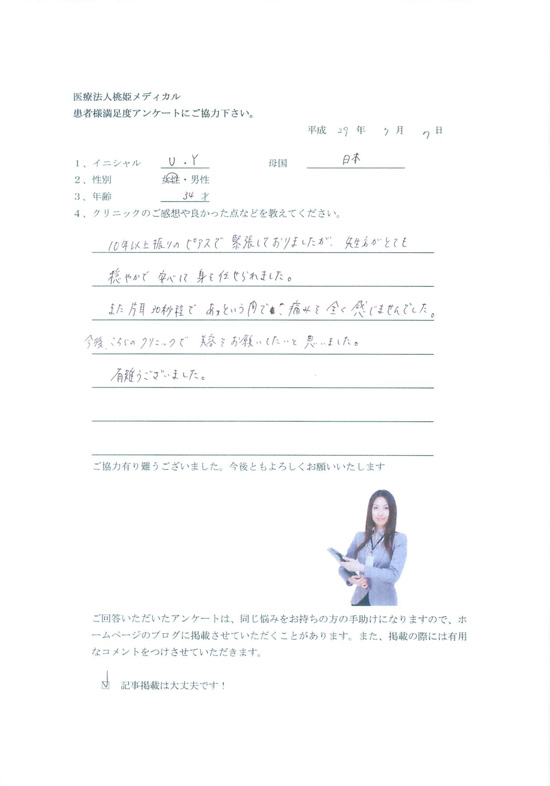 医療法人桃姫メディカル
患者様満足度アンケートにご協力下さい。
平成 29 年 7 月 7 日
1、イニシャル U.Y 母国 日本
2、性別 女性・男性
3、年齢 34 才
4、クリニックのご感想や良かった点などを教えてください。
10年以上振りのピアスで 緊張しておりましたが、先生がとても
穏やかで 安心して 身を任せられました。
また片耳30秒程で あっという間で、痛みも全く感じませんでした。
今後、こちらのクリニックで 美容をお願いしたいと思いました。
有難うございました。
ご協力有り難うございました。今後ともよろしくお願いいたします
ご回答いただいたアンケートは、同じ悩みをお持ちの方の手助けになりますので、ホ
ームページのブログに掲載させていただくことがあります。また、掲載の際には有用
なコメントをつけさせていただきます。
☑ 記事掲載は大丈夫です！